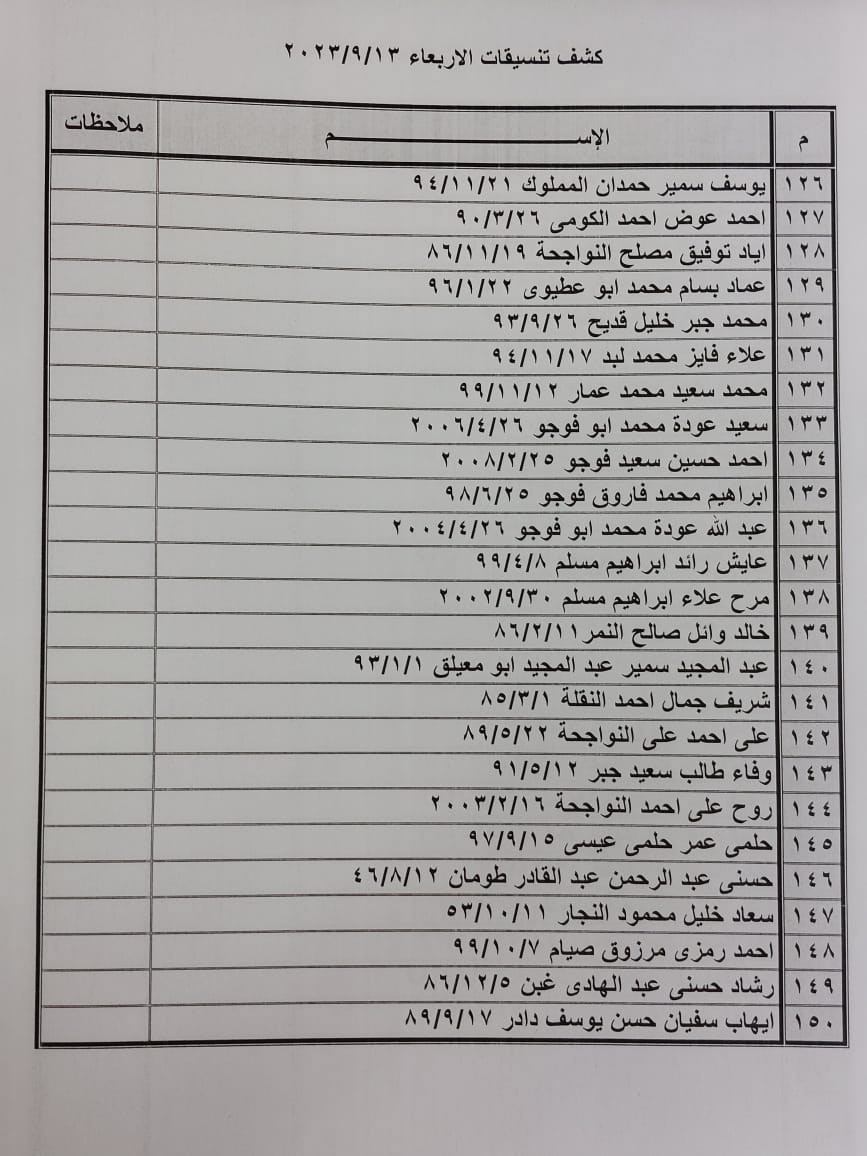 كشف تنسيقات الاربعاء ٢٠٢٣/٩/١٣
م الإســـــم ملاحظات
١٢٦ يوسف سمير حمدان المملوك ٩٤/١١/٢١
١٢٧ احمد عوض احمد الكومى ٩٠/٣/٢٦
١٢٨ اياد توفيق مصلح النواجحة ٨٦/١١/١٩
١٢٩ عماد بسام محمد ابو عطيوى ٩٦/١/٢٢
١٣٠ محمد جبر خليل قديح ٩٣/٩/٢٦
١٣١ علاء فايز محمد لبد ٩٤/١١/١٧
١٣٢ محمد سعيد محمد عمار ٩٩/١١/١٢
١٣٣ سعيد عودة محمد ابو فوجو ٢٠٠٦/٤/٢٦
١٣٤ احمد حسين سعيد فوجو ٢٠٠٨/٢/٢٥
١٣٥ ابراهيم محمد فاروق فوجو ٩٨/٦/٢٥
١٣٦ عبد الله عودة محمد ابو فوجو ٢٠٠٤/٤/٢٦
١٣٧ عايش رائد ابراهيم مسلم ٩٩/٤/٨
١٣٨ مرح علاء ابراهيم مسلم ٢٠٠٢/٩/٣٠
١٣٩ خالد وائل صالح النمر ٨٦/٢/١١
١٤٠ عبد المجيد سمير عبد المجيد ابو معيلق ٩٣/١/١
١٤١ شريف جمال احمد النقلة ٨٥/٣/١
١٤٢ على احمد على النواجحة ٨٩/٥/٢٢
١٤٣ وفاء طالب سعيد جبر ٩١/٥/١٢
١٤٤ روح على احمد النواجحة ٢٠٠٣/٢/١٦
١٤٥ حلمى عمر حلمى عيسى ٩٧/٩/١٥
١٤٦ حسنى عبد الرحمن عبد القادر طومان ٤٦/٨/١٢
١٤٧ سعاد خليل محمود النجار ٥٣/١٠/١١
١٤٨ احمد رمزى مرزوق صيام ٩٩/١٠/٧
١٤٩ رشاد حسنى عبد الهادى غبن ٨٦/١٢/٥
١٥٠ ايهاب سفيان حسن يوسف دادر ٨٩/٩/١٧